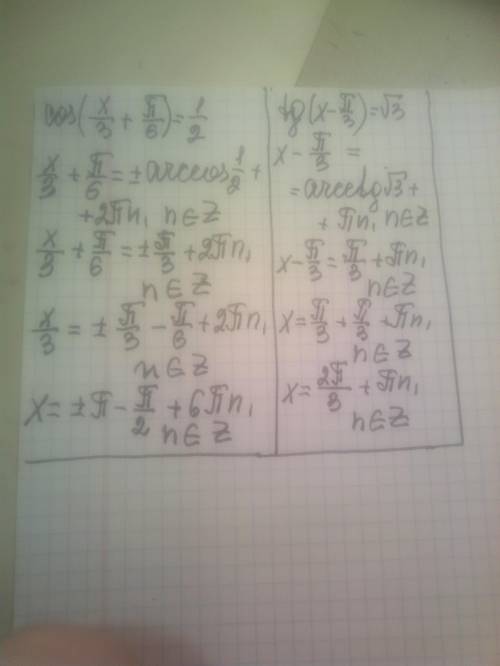 cos(x/3 + π/6) = 1/2
x/3 + π/6 = ± arccos 1/2 +
+ 2πn, n ∈ Z
x/3 + π/6 = ± π/3 + 2πn,
n ∈ Z
x/3 = ± π/3 − π/6 + 2πn,
n ∈ Z
X = ± π − π/2 + 6πn,
n ∈ Z
tg(x − π/3) = √3
x − π/3 =
= arctg √3 +
+ πn, n ∈ Z
x − π/3 = π/3 + πn,
n ∈ Z
X = π/3 + π/3 + πn,
n ∈ Z
X = 2π/3 + πn,
n ∈ Z